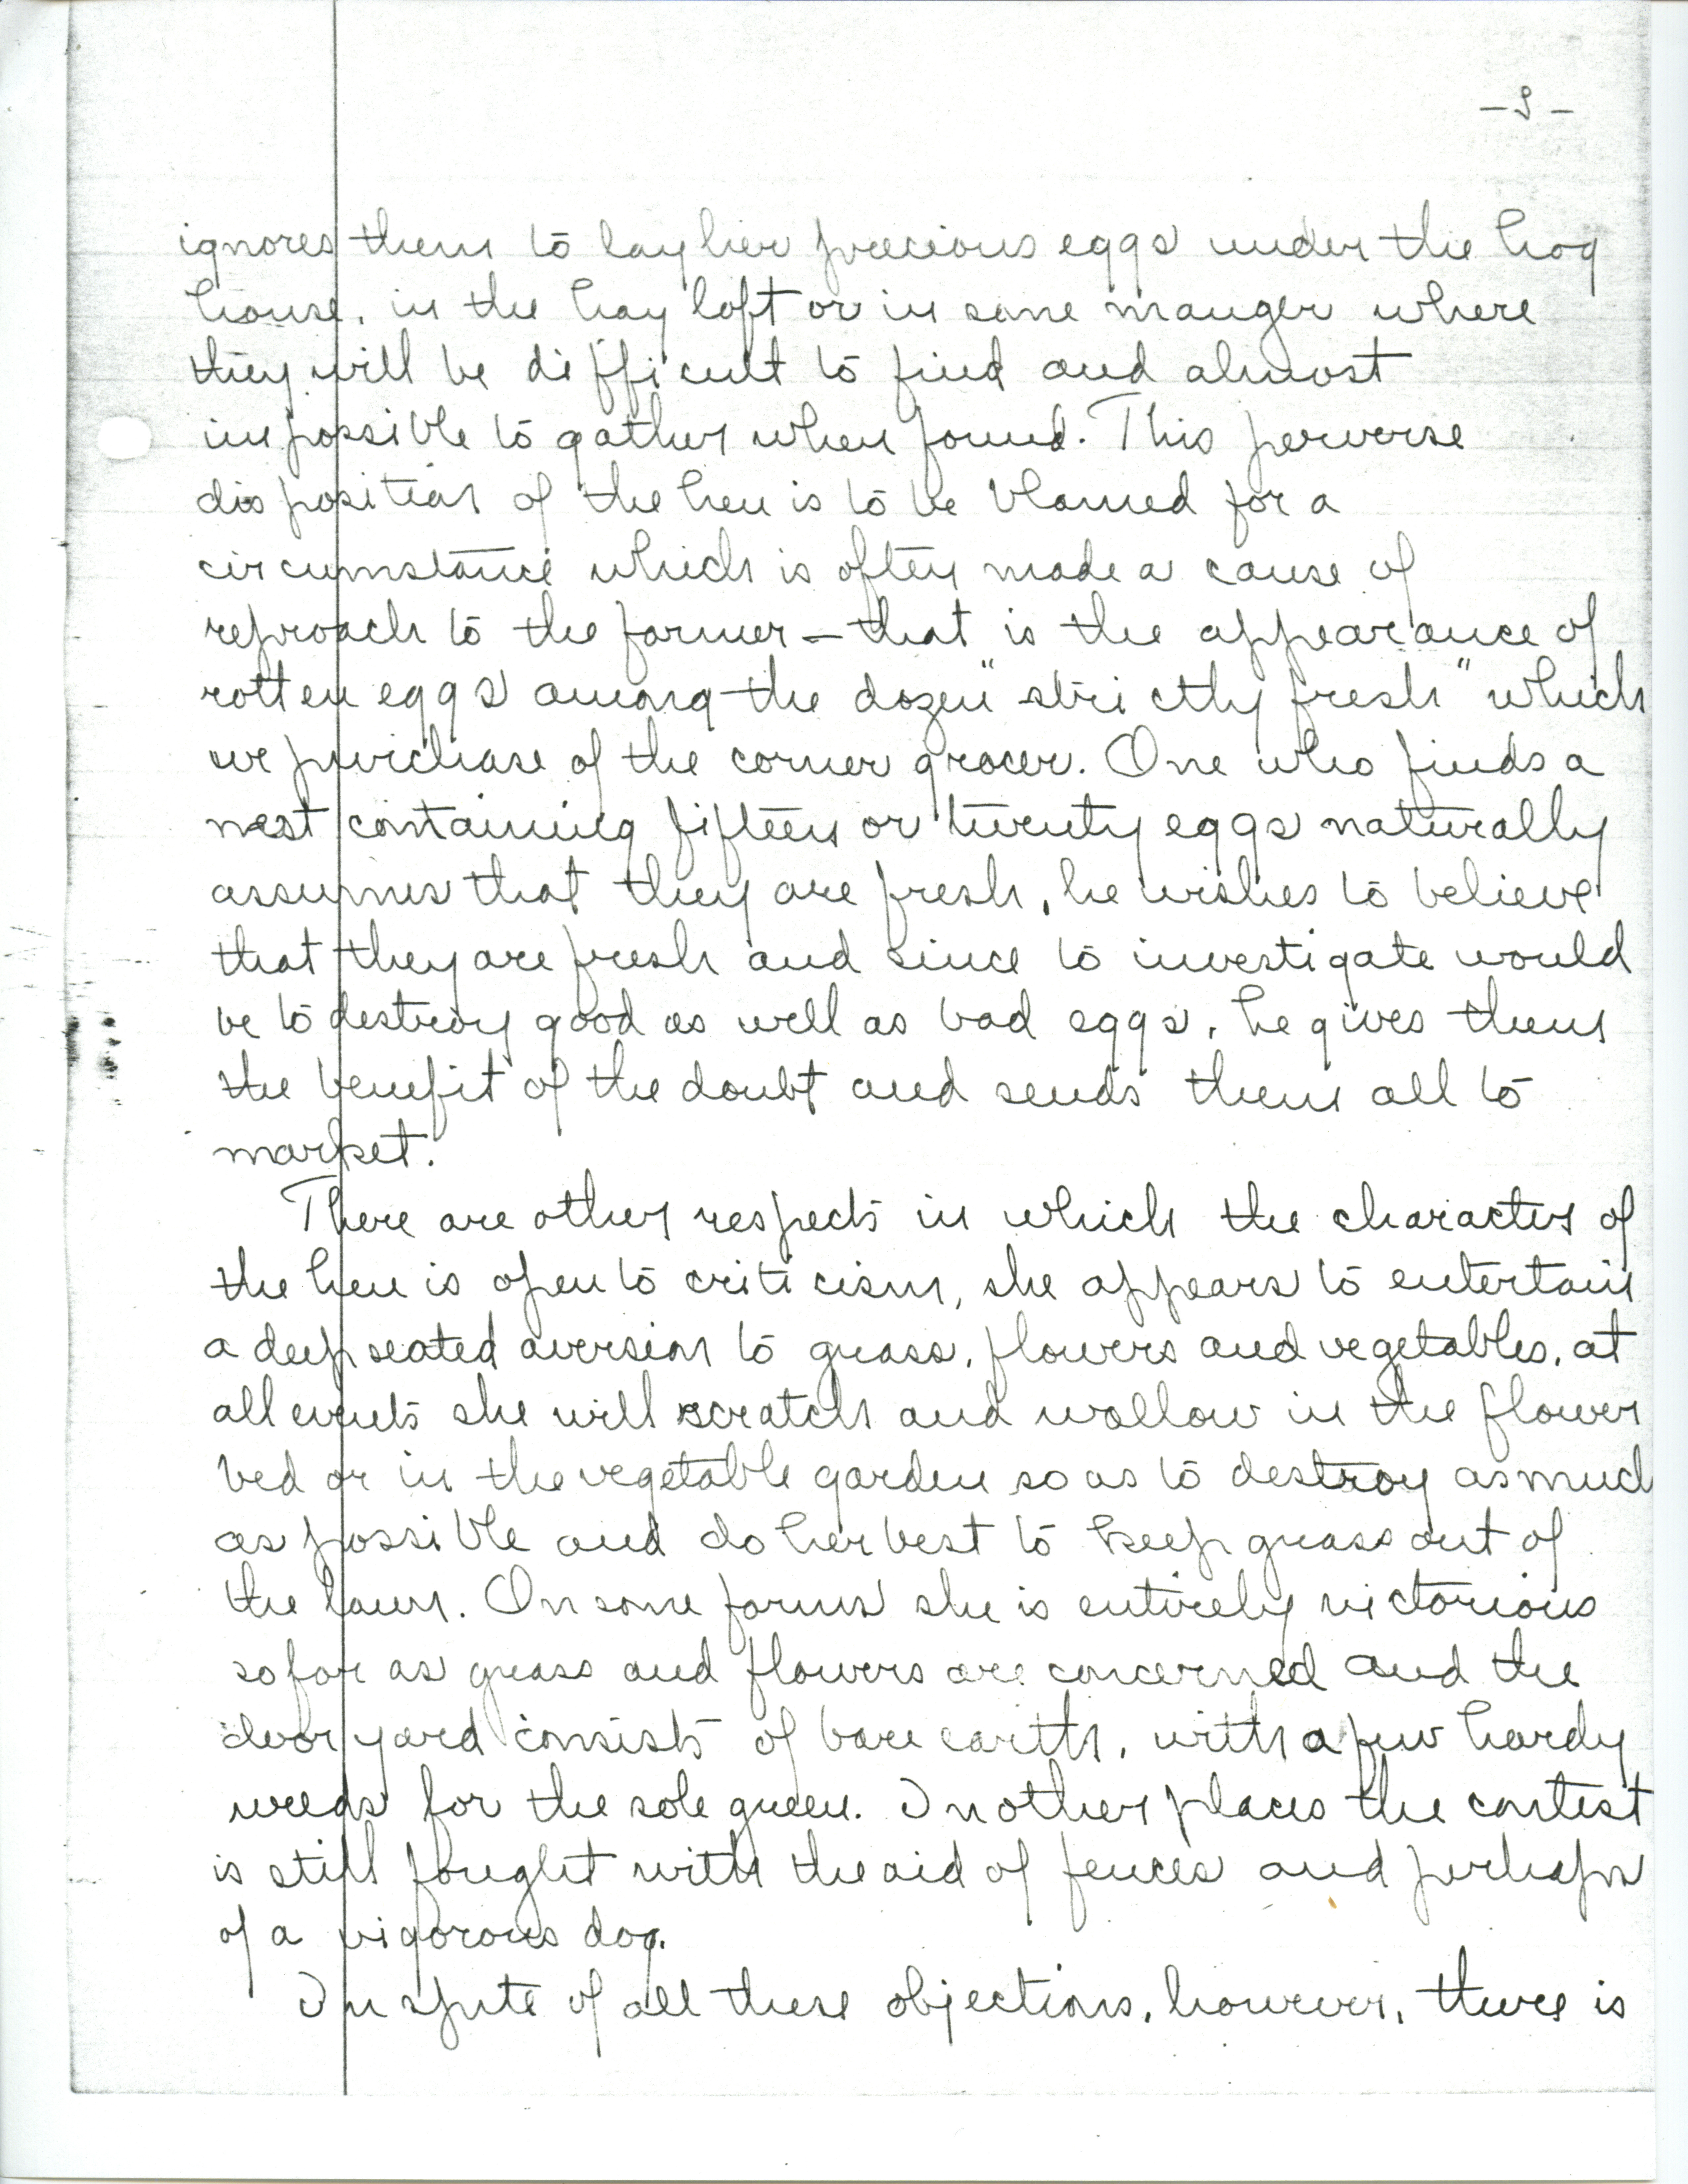 ignores them to lay her precious eggs under the hog
house, in the hay loft or in some manger where
they will be difficult to find and almost
impossible to gather when found. This perverse
disposition of the hen is to be blamed for a
circumstance which is often made a cause of
reproach to the farmer – that is the appearance of
rotten eggs among the dozen "strictly fresh" which
we purchase of the corner grocer. One who finds a
nest containing fifteen or twenty eggs naturally
assumes that they are fresh, he wishes to believe
that they are fresh and since to investigate would
be to destroy good as well as bad eggs, he gives them
the benefit of the doubt and sends them all to
market.
There are other respects in which the character of
the hen is open to criticism, she appears to entertain
a deep seated aversion to grass, flowers and vegetables, at
all events she will scratch and wallow in the flower
bed or in the vegetable garden so as to destroy as much
as possible and do her best to keep grass out of
the lawn. On some farms she is entirely victorious
so far as grass and flowers are concerned and the
door yard consists of bare earth, with a few hardy
weeds for the sole green. In other places the contest
is still fought with the aid of fences and perhaps
of a vigorous dog.
In spite of all these objections, however, there is